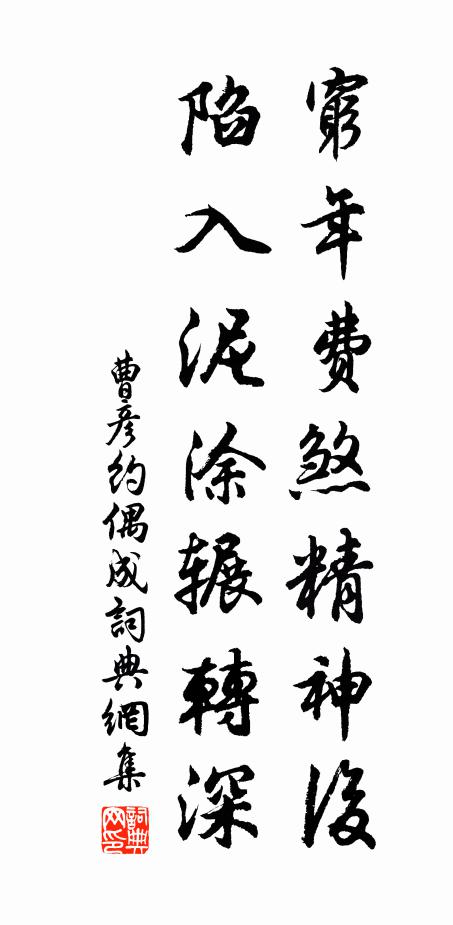 窮年費煞精神後
陷入泥涂辗轉深
曹彥約偶成詞典網集
詞典网印